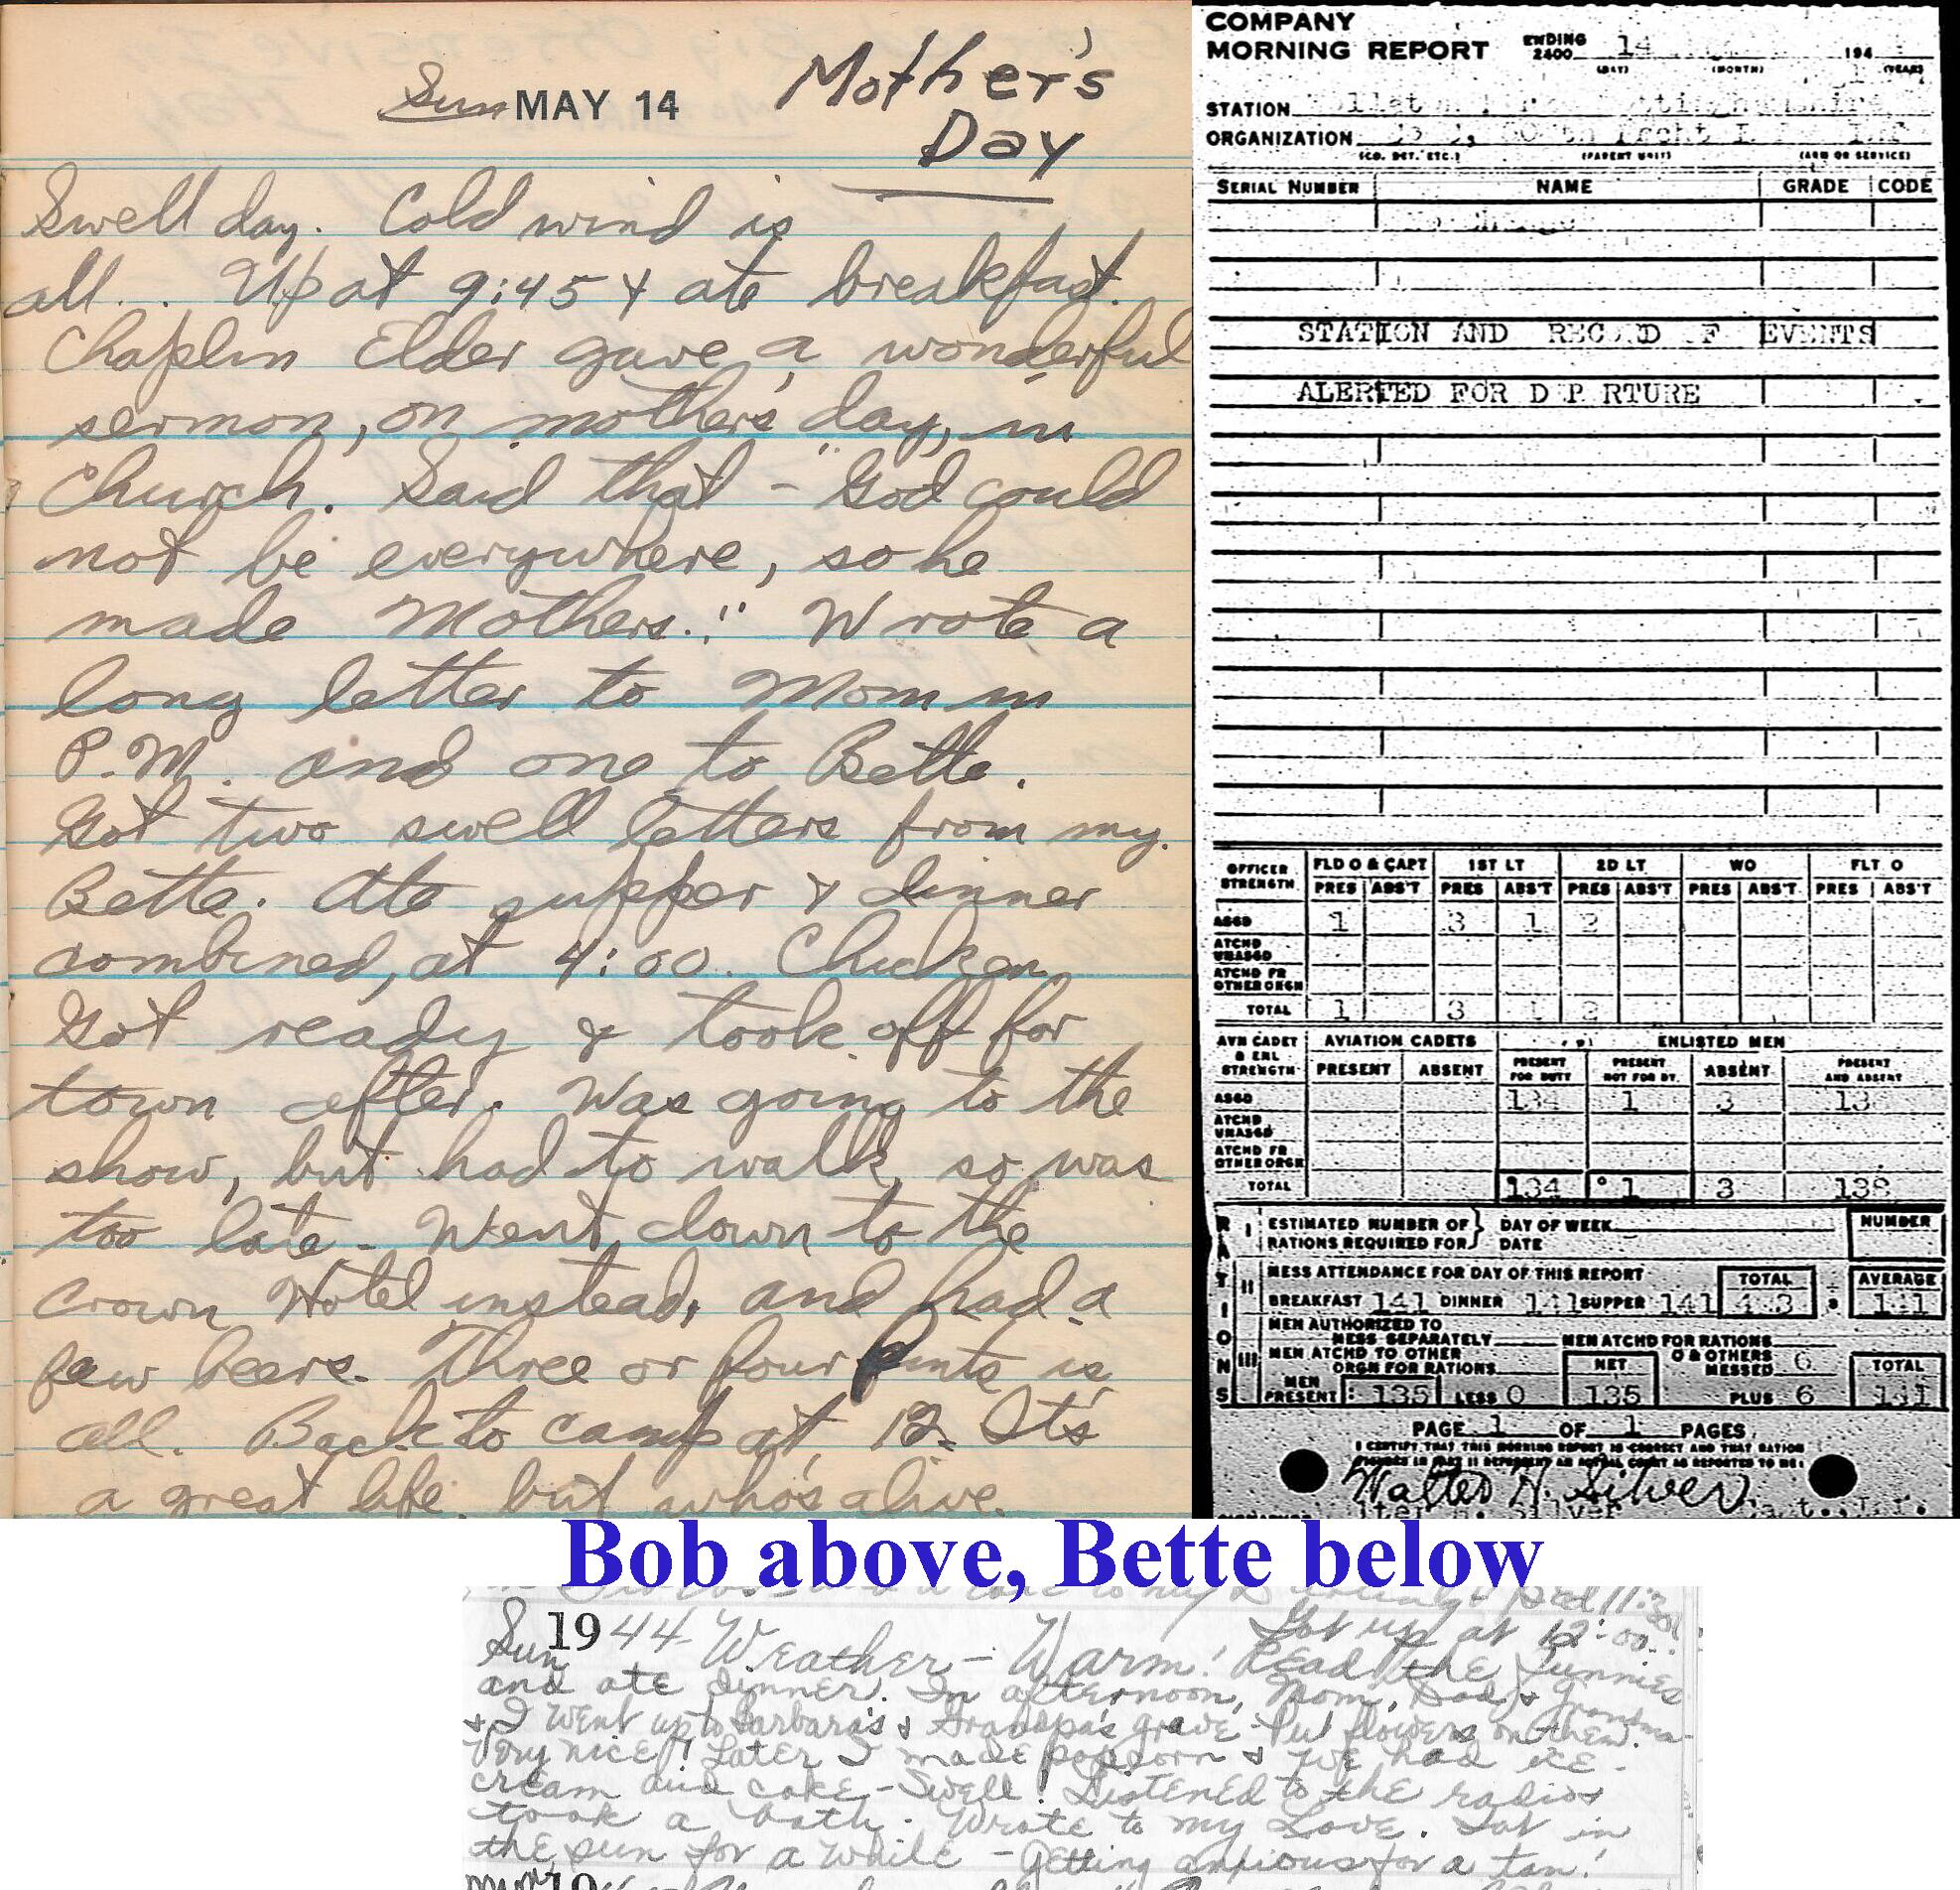 Sun MAY 14 Mother's
Day
Swell day. Cold wind is
all. . Up at 9:45 & ate breakfast.
Chaplin Elder gave a wonderful
sermon, on mother's day, in
Church. Said that - God could
not be everywhere, so he
made Mothers." Wrote a
long letter to Mom in
P.M. and one to Bette.
Got two swell letters from my
Bette. Ate supper & dinner
combined, at 4:00. Chicken
Got ready & took off for
town after. Was going to the
show, but had to walk, so was
too late. Went down to the
Crown Hotel instead, and had a
few beers. Three or four pints is
all. Back to camp at 12. It's
a great life, but who's alive.
COMPANY
MORNING REPORT ENDING 2400 14 194
(DAY) (MONTH) (YEAR)
STATION
ORGANIZATION
(CO. DET. ETC.) (PARENT UNIT) (ARM OR SERVICE)
SERIAL NUMBER NAME GRADE CODE
STATION AND RECORD OF EVENTS
ALERTED FOR DEPARTURE
OFFICER STRENGTH FLD O & CAPT 1ST LT 2D LT WO FLT O
PRES ABS'T PRES ABS'T PRES ABS'T PRES ABS'T PRES ABS'T
ASGD 1 3 1 2
ATCHD UNASGD
ATCHD FR OTHER ORGN
TOTAL 1 3 1 2
AVN CADET & ENL STRENGTH AVIATION CADETS ENLISTED MEN
PRESENT ABSENT PRESENT FOR DUTY PRESENT NOT FOR DY. ABSENT PRESENT AND ABSENT
ASGD 134 1 3 138
ATCHD UNASGD
ATCHD FR OTHER ORGN
TOTAL 134 1 3 138
RATIONS
I ESTIMATED NUMBER OF DAY OF WEEK NUMBER
RATIONS REQUIRED FOR DATE
II MESS ATTENDANCE FOR DAY OF THIS REPORT TOTAL AVERAGE
BREAKFAST 141 DINNER 141 SUPPER 141 423 3 141
III MEN AUTHORIZED TO
MESS SEPARATELY MEN ATCHD FOR RATIONS
MEN ATCHD TO OTHER ORGN FOR RATIONS NET O & OTHERS MESSED 6 TOTAL
MEN PRESENT: 135 LESS 0 135 PLUS 6 141
PAGE 1 OF 1 PAGES
I CERTIFY THAT THIS MORNING REPORT IS CORRECT AND THAT RATION
FIGURES IN PART II REPRESENT AN ACTUAL COUNT AS REPORTED TO ME:
Walter H. Silver
Bob above, Bette below
Sun 1944 Weather - Warm! Got up at 12:00.
Read the funnies
and ate dinner. In afternoon, Mom, Dad, & Grandma
& I went up to Barbara's & Grandpa's grave - Put flowers on them.
Very nice! Later I made popcorn & we had ice
cream and cake - Swell! Listened to the radio &
took a bath. Wrote to my Love. Sat in
the sun for a while - Getting anxious for a tan!